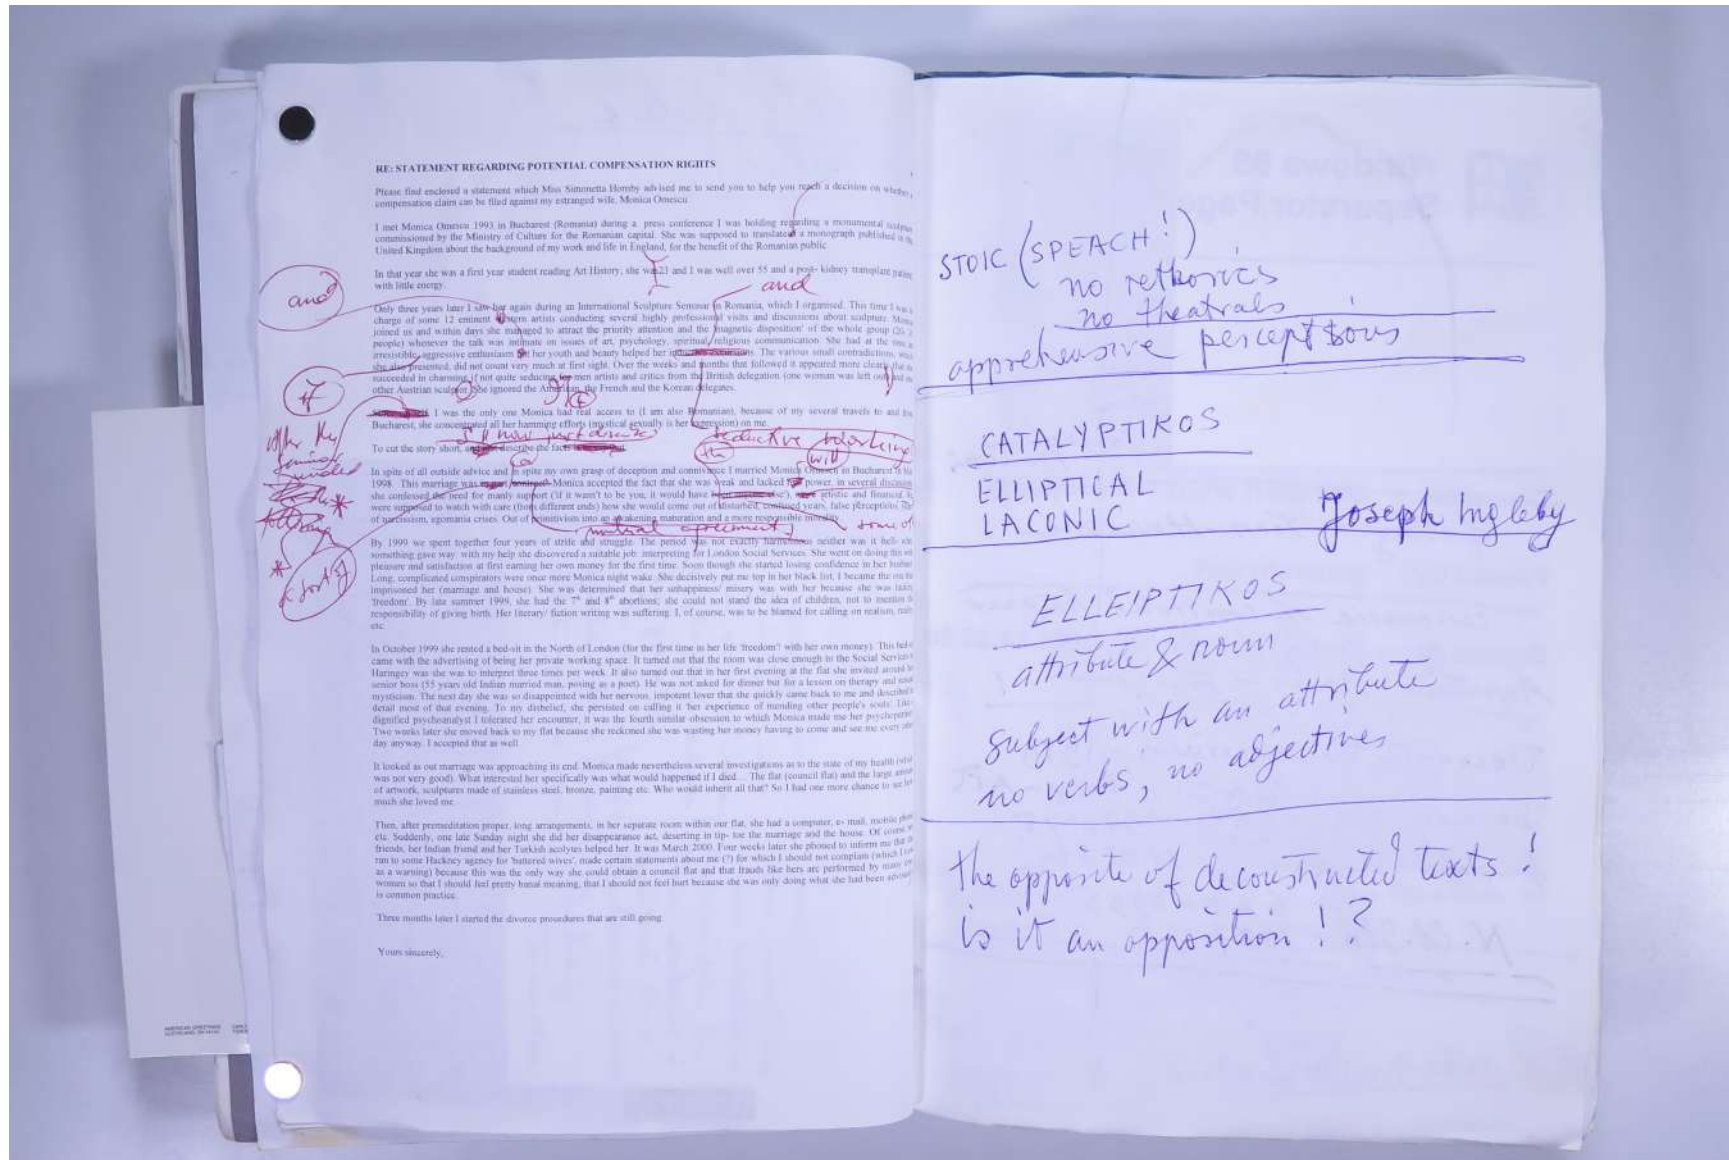 RE: STATEMENT REGARDING POTENTIAL COMPENSATION RIGHTS
Please find enclosed a statement which Miss Simonetta Hornby advised me to send you to help you reach a decision on whether
compensation claim can be filed against my estranged wife, Monica Omescu.
I met Monica Omescu 1993 in Bucharest (Romania) during a press conference I was holding regarding a monumental
commissioned by the Ministry of Culture for the Romanian capital. She was supposed to translated a monograph published in
United Kingdom about the background of my work and life in England, for the benefit of the Romanian public
In that year she was a first year student reading Art History; she was 23 and I was well over 55 and a post- kidney transplant
with little energy.
and
and
Only three years later I saw her again during an International Sculpture Seminar in Romania, which I organised. This time I was
charge of some 12 eminent artists conducting several highly professional visits and discussions about sculpture.
joined us and within days she managed to attract the priority attention and the 'magnetic disposition' of the whole group
people) whenever the talk was intimate on issues of art, psychology, spiritual/religious communication. She had at the
irresistible, aggressive enthusiasm her youth and beauty helped her The various small contradictions,
she also presented, did not count very much at first sight. Over the weeks and months that followed it appeared more clearly
succeeded in charming, if not quite seducing men artists and critics from the British delegation (one woman was left out)
other Austrian sculptor. She ignored the American, the French and the Korean delegates.
I was the only one Monica had real access to (I am also Romanian), because of my several travels to and
Bucharest, she concentrated all her hamming efforts (mystical sexually is her expression) on me.
To cut the story short, describe the facts
seductive
will
In spite of all outside advice and in spite my own grasp of deception and connivance I married Monica Omescu in Bucharest in
1998. This marriage was Monica accepted the fact that she was weak and lacked power, in several
she confessed the need for manly support ('if it wasn't to be you, it would have artistic and financial
were supposed to watch with care (from different ends) how she would come out of disturbed, confused years, false perceptions
of narcissism, egomania crises. Out of primitivism into an awakening maturation and a more responsible
mutual agreement
some of
By 1999 we spent together four years of strife and struggle. The period was not exactly neither was it hell
something gave way: with my help she discovered a suitable job: interpreting for London Social Services. She went on doing this
pleasure and satisfaction at first earning her own money for the first time. Soon though she started losing confidence in her
Long, complicated conspirators were once more Monica night wake. She decisively put me top in her black list, I became the
imprisoned her (marriage and house). She was determined that her unhappiness/ misery was with her because she was
'freedom'. By late summer 1999, she had the 7th and 8th abortions; she could not stand the idea of children, not to mention
responsibility of giving birth. Her literary/ fiction writing was suffering. I, of course, was to be blamed for calling on realism,
etc.
In October 1999 she rented a bed-sit in the North of London (for the first time in her life 'freedom'! with her own money). This
came with the advertising of being her private working space. It turned out that the room was close enough to the Social Services
Haringey was she was to interpret three times per week. It also turned out that in her first evening at the flat she invited
senior boss (55 years old Indian married man, posing as a poet). He was not asked for dinner but for a lesson on therapy and
mysticism. The next day she was so disappointed with her nervous, impotent lover that she quickly came back to me and described
detail most of that evening. To my disbelief, she persisted on calling it 'her experience of mending other people's souls'.
dignified psychoanalyst I tolerated her encounter, it was the fourth similar obsession to which Monica made me her
Two weeks later she moved back to my flat because she reckoned she was wasting her money having to come and see me every
day anyway. I accepted that as well
It looked as out marriage was approaching its end. Monica made nevertheless several investigations as to the state of my health
was not very good). What interested her specifically was what would happened if I died... The flat (council flat) and the large
of artwork, sculptures made of stainless steel, bronze, painting etc. Who would inherit all that? So I had one more chance to see
much she loved me.
Then, after premeditation proper, long arrangements, in her separate room within our flat, she had a computer, e- mail, mobile
etc. Suddenly, one late Sunday night she did her disappearance act, deserting in tip- toe the marriage and the house. Of course
friends, her Indian friend and her Turkish acolytes helped her. It was March 2000. Four weeks later she phoned to inform me that
ran to some Hackney agency for 'battered wives', made certain statements about me (?) for which I should not complain (which I
as a warning) because this was the only way she could obtain a council flat and that frauds like hers are performed by many
women so that I should feel pretty banal meaning, that I should not feel hurt because she was only doing what she had been
is common practice.
Three months later I started the divorce procedures that are still going
Yours sincerely,
AMERICAN GREETINGS
STOIC (SPEACH!)
no rethorics
no theatrals
apprehensive perceptions
CATALYPTIKOS
ELLIPTICAL
LACONIC Joseph Ingleby
ELLEIPTIKOS
attribute & noun
subject with an attribute
no verbs, no adjectives
the opposite of deconstructed texts!
is it an opposition!?